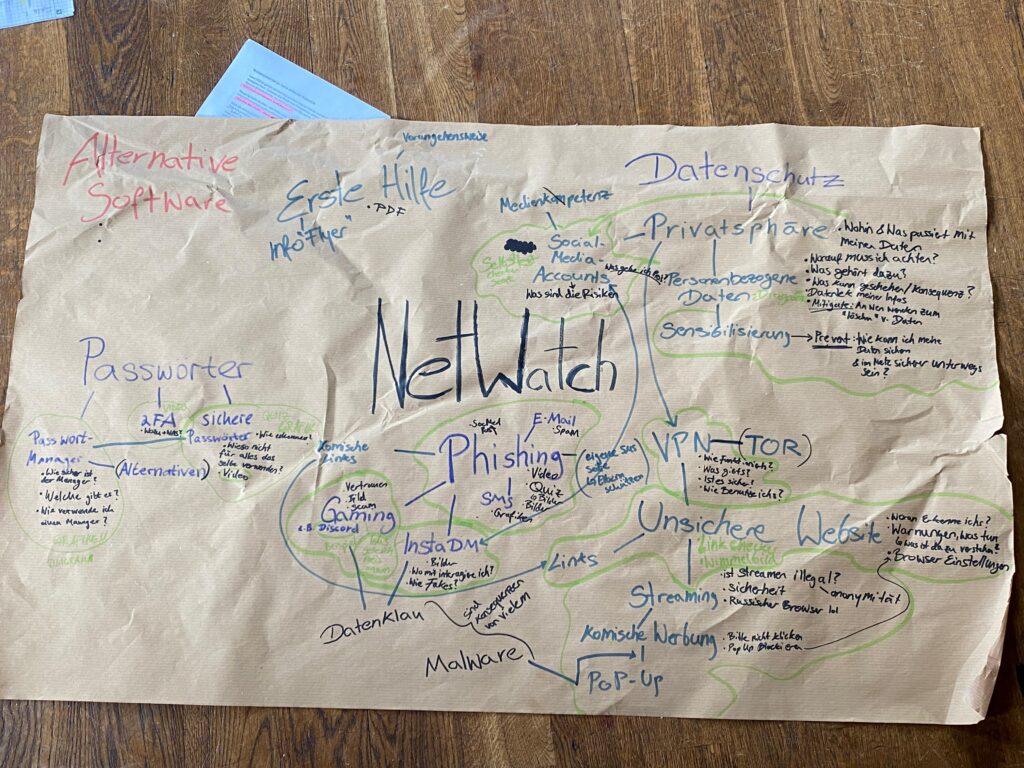 Alternative
Software
Vorangehensweise
Erste Hilfe
• PDF
Info "Flyer"
Datenschutz
Medienkompetenz
Social-
Media-
Accounts
Was sind die Risiken
Privatsphäre
Personenbezogene
Daten
Sensibilisierung
• Wohin & Was passiert mit
meinen Daten
• Worauf muss ich achten?
• Was gehört dazu?
• Was kann geschehen/Konsequenz?
• Datenleak meiner Infos
• Mitigate: An wen wenden zum
"löschen" v. Daten
Prevent: Wie kann ich meine
Daten sichern
& im Netz sicher unterwegs
sein?
NetWatch
Passwörter
Passwort-
Manager
• Wie sicher ist
der Manager?
• Welche gibt es?
• Wie verwende ich
einen Manager?
GRAFIKEN
2FA
(Alternativen)
sichere
Passwörter
• Wie erkennen?
• Wieso nicht
für alles das
selbe verwenden?
• Video
Komische
Links
Phishing
E-Mail
• Spam
• Video
• Quiz
↳ Bilder
• Bilder
SMS
• Grafiken
eigene SMS
Seite
Vertrauen
Gaming
z.B. Discord
InstaDM
• Bilder
• Wo mit interagiere ich?
• Wie Fakes?
Datenklau
sind
Konsequenzen
von Vielem
Malware
VPN
(TOR)
• Wie funkt. mich?
• Was gibts?
• Ist es sicher?
• Wie Benutze ichs?
Unsichere Website
Link checker
• Wimmelbild
• Woran Erkenne ichs?
• Warnungen, was tun
↳ Was ist da zu verstehen?
• Browser Einstellungen
Links
Streaming
• ist Streamen illegal?
• Sicherheit
• Russischer Browser lol
anonymität
Komische Werbung
• Bitte nicht klicken
• Pop Up Blockieren
PoP-Up